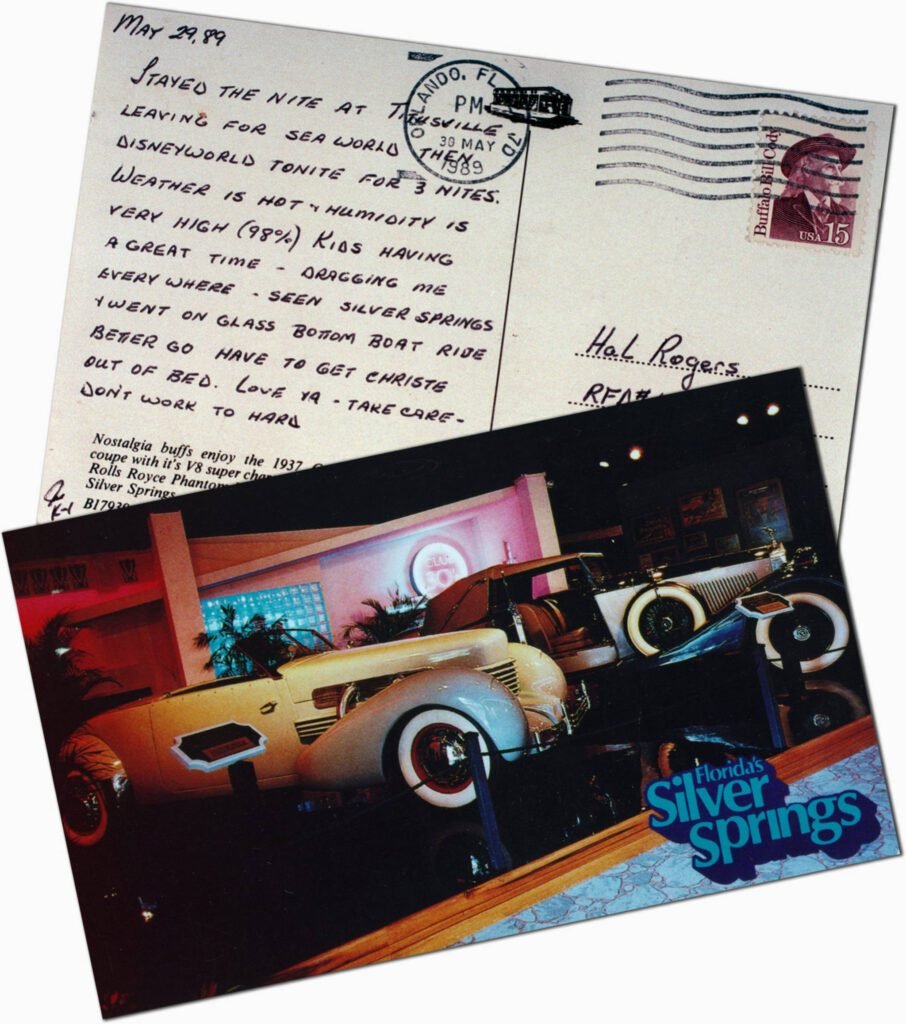 MAY 29,89
STAYED THE NITE AT TITUSVILLE
LEAVING FOR SEA WORLD THEN
DISNEYWORLD TONITE FOR 3 NITES.
WEATHER IS HOT & HUMIDITY IS
VERY HIGH (98%) KIDS HAVING
A GREAT TIME - DRAGGING ME
EVERY WHERE - SEEN SILVER SPRINGS
& WENT ON GLASS BOTTOM BOAT RIDE
BETTER GO HAVE TO GET CHRISTE
OUT OF BED. LOVE YA - TAKE CARE -
DON'T WORK TO HARD
Nostalgia buffs enjoy the 1937
coupe with it's V8 super
Rolls Royce Phantom
Silver Springs
ORLANDO, FL
PM
30 MAY
1989
Buffalo Bill Cody
USA 15
Hal Rogers
CLUB
Florida's
Silver
Springs